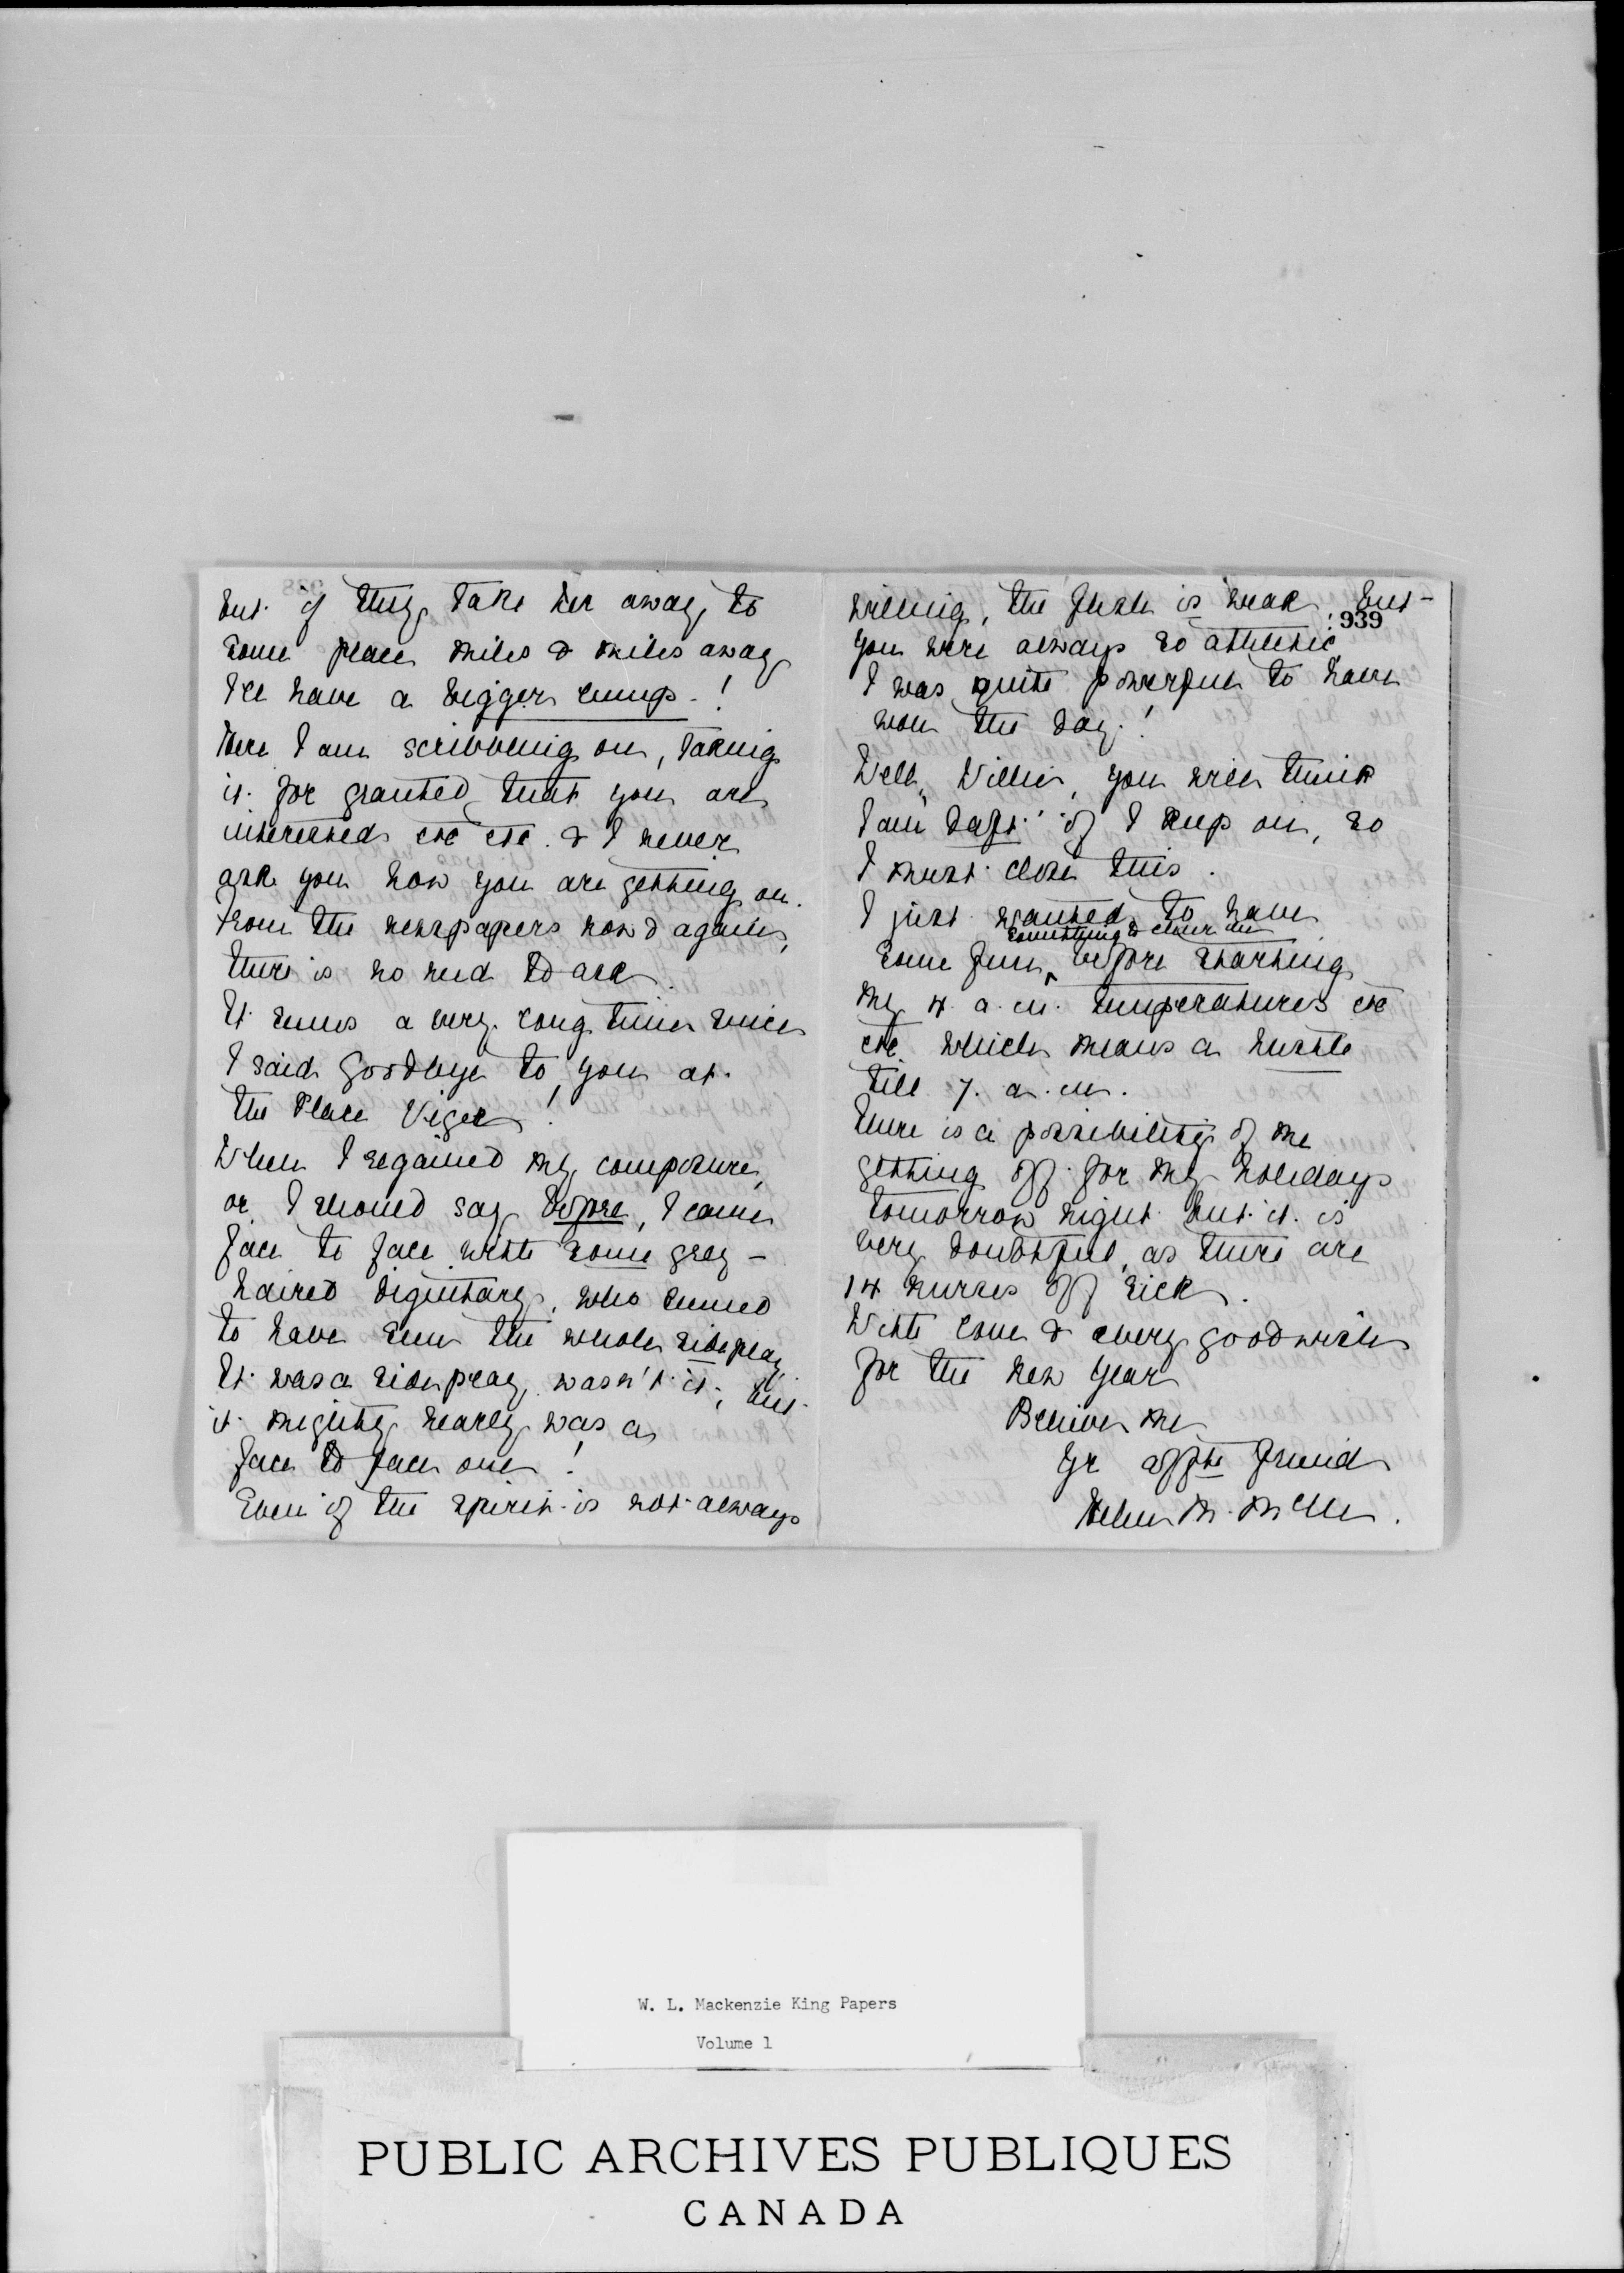 but if they take her away to
some place miles & miles away
I'll have a bigger lump - !
Here I am scribbling on, taking
it for granted that you are
interested etc etc. & I never
ask you how you are getting on.
From the newspapers now & again,
there is no need to ask.
It seems a very long time since
I said Goodbye to you at
the Place Viger!
When I regained my composure,
or I should say before, I came
face to face with some grey-
haired dignitary, who seemed
to have seen the whole sideplay
It was a sideplay, wasn't it; but
it mighty nearly was a
face to face one!
Even if the spirit is not always
willing, the flesh is weak, but-
939
you were always so athletic
I was quite powerful to have
won the day!
Well, Willie, you will think
I am daft if I keep on, so
I must close this.
I just wanted to have
something to cheer me
some fun, before starting
my 4 a.m. temperatures etc
etc. which means a hustle
till 7. a.m.
There is a possibility of me
getting off for my holidays
tomorrow night but it is
very doubtful, as there are
14 nurses off sick.
With love & every good wish
for the New Year
Believe me
Yr affte friend
Helen M.
W. L. Mackenzie King Papers
Volume 1
PUBLIC ARCHIVES PUBLIQUES
CANADA